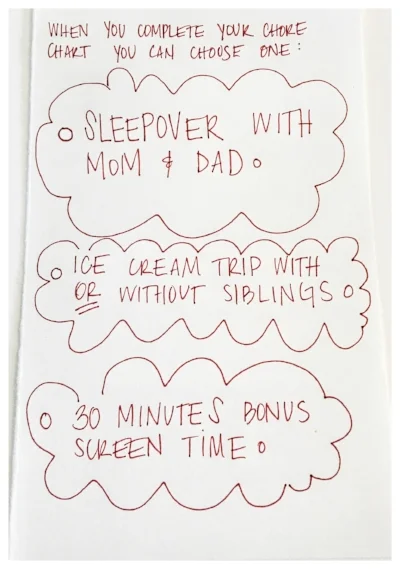 WHEN YOU COMPLETE YOUR CHORE
CHART YOU CAN CHOOSE ONE:
SLEEPOVER WITH
MOM & DAD
ICE CREAM TRIP WITH
OR WITHOUT SIBLINGS
30 MINUTES BONUS
SCREEN TIME